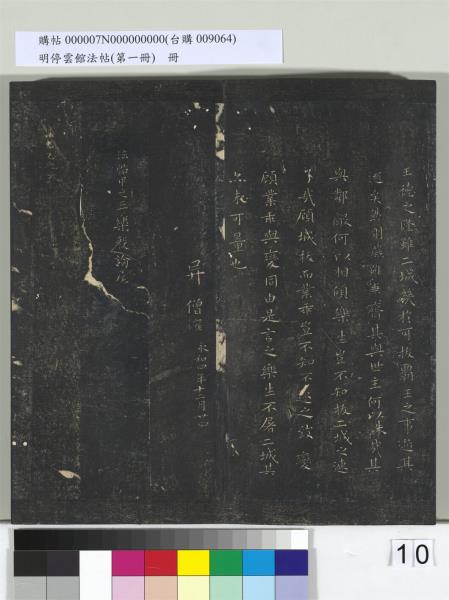 購帖 000007N000000000(台購 009064)
明停雲館法帖(第一冊) 冊
王德之隆雖二城幾於可拔霸王之事逝其
遠矣然則燕雖兼齊其與世主何以殊哉其
與鄰敵何以相傾樂生豈不知拔二城之速
了哉顧城拔而業乖豈不知不速之致變
顧業乖與變同由是言之樂生不屠二城其
亦未可量也
永和四年十二月廿四日
異 僧權
臨
樂毅論
10